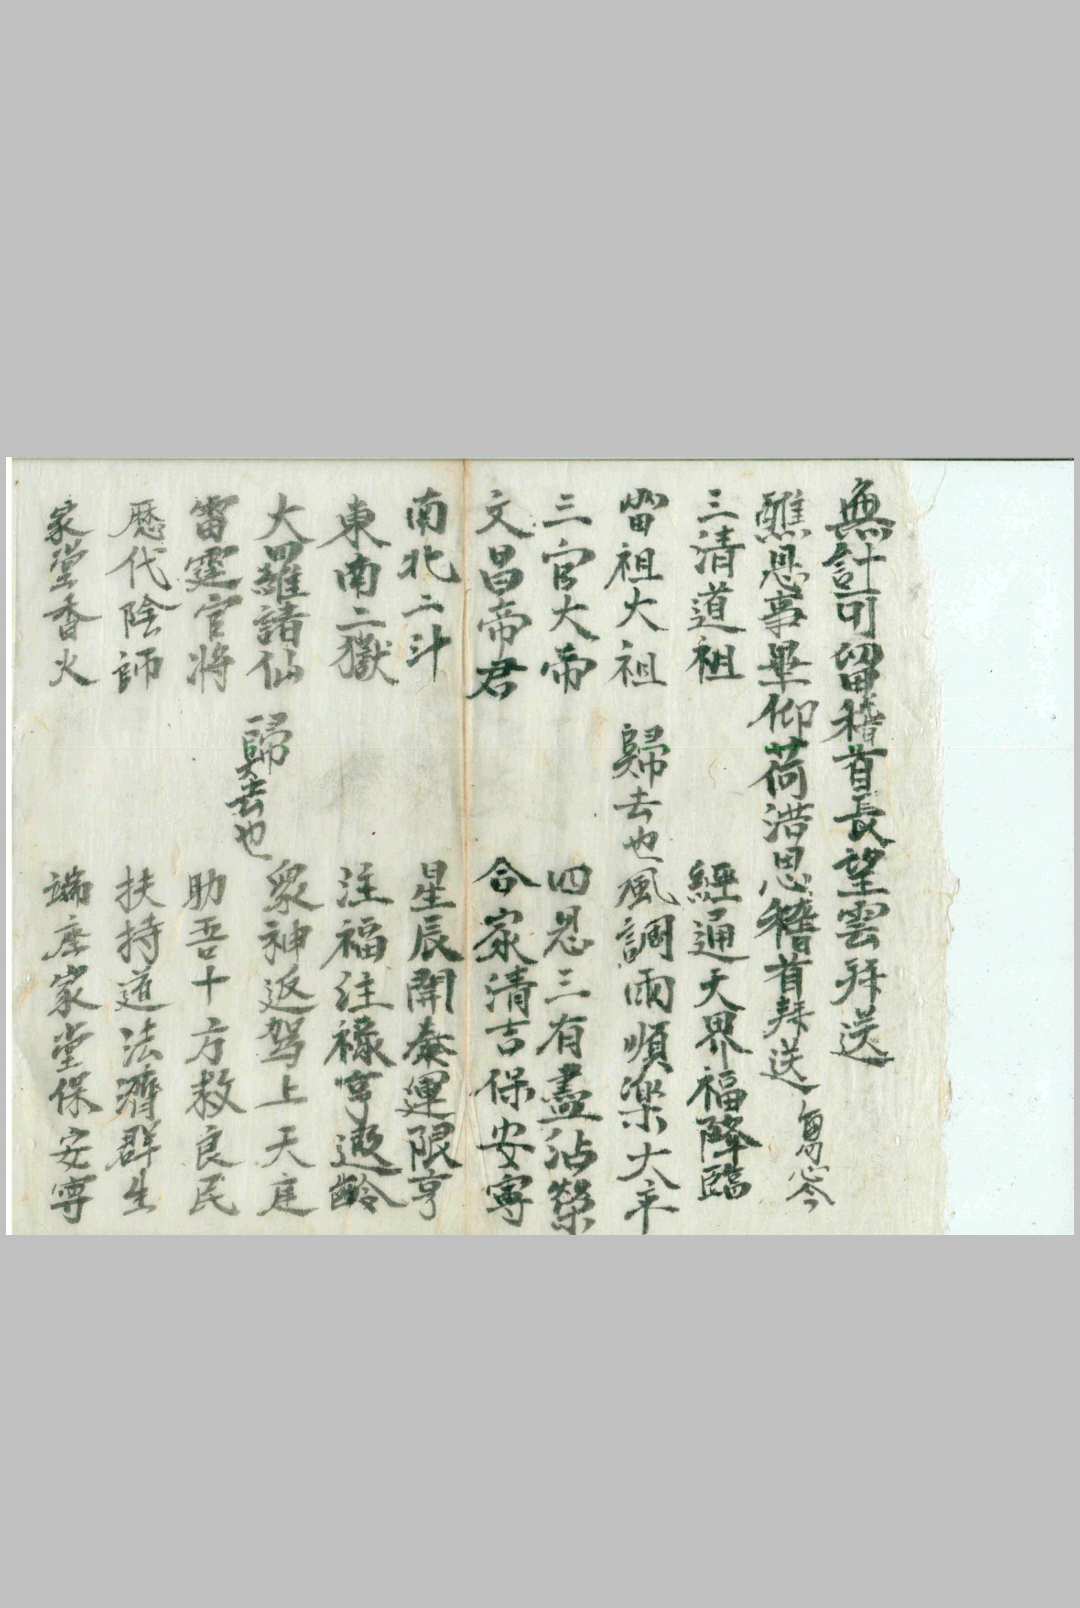 無計可留稽首長望雲拜送
醮恩事畢仰荷洪恩稽首拜送
三清道祖 經通天界福降臨
雷祖大祖 歸去也 風調雨順楽大平
三官大帝 四恩三有盡沾榮
文昌帝君 合家清吉保安寧
南北二斗 星辰開泰運限亨
東南二獄 注福注祿享遐齡
大羅諸仙 歸去也 衆神返駕上天庭
雷霆官將 助吾十方救良民
歷代陰師 扶持道法濟群生
家堂香火 端座家堂保安寧